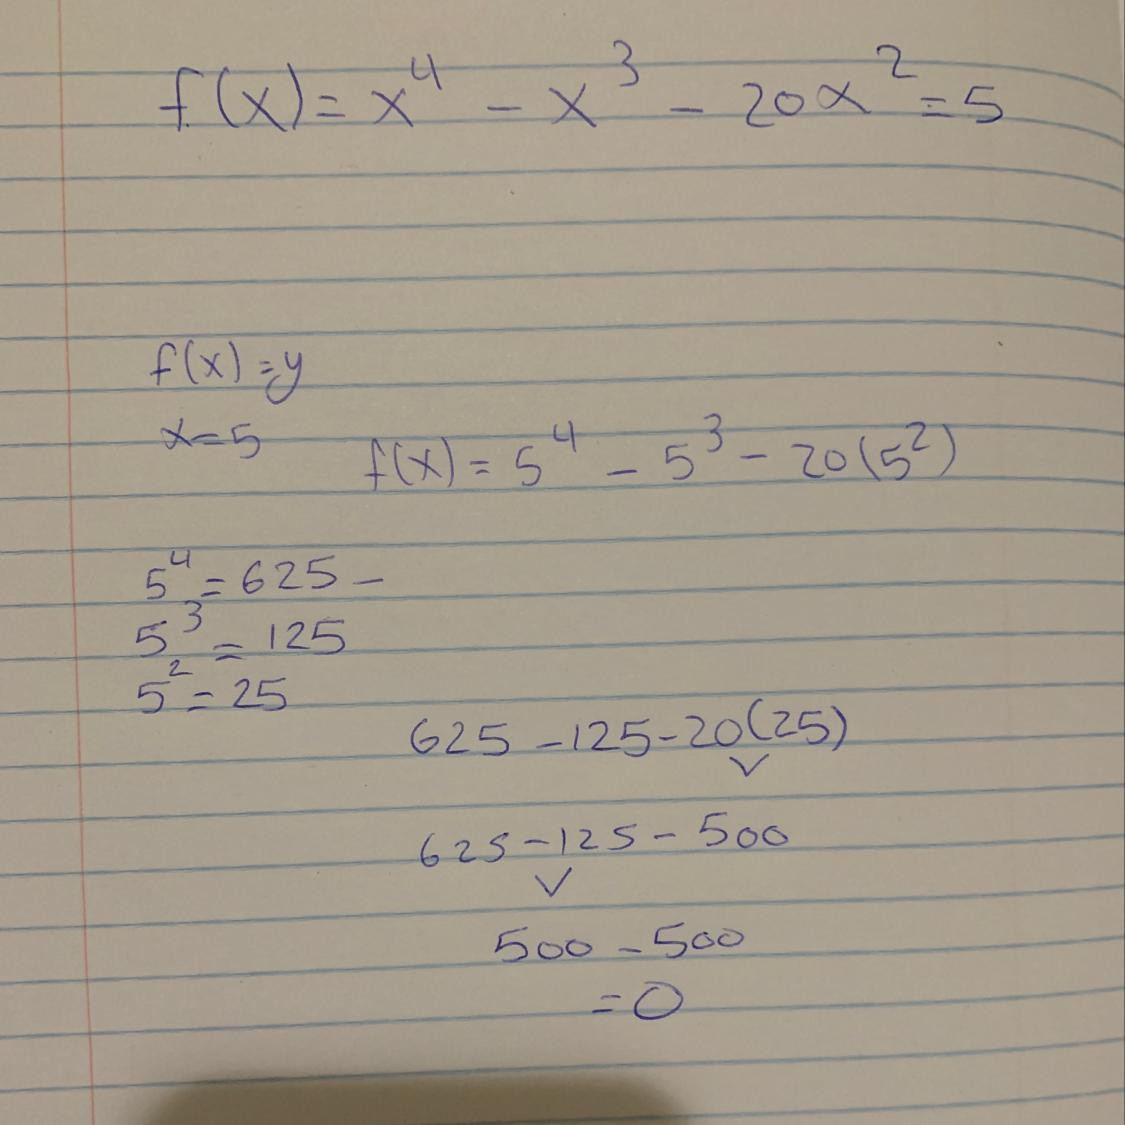 f(x) = x⁴ - x³ - 20x² = 5
f(x) = y
x = 5
f(x) = 5⁴ - 5³ - 20(5²)
5⁴ = 625 -
5³ = 125
5² = 25
625 - 125 - 20(25)
625 - 125 - 500
500 - 500
= 0